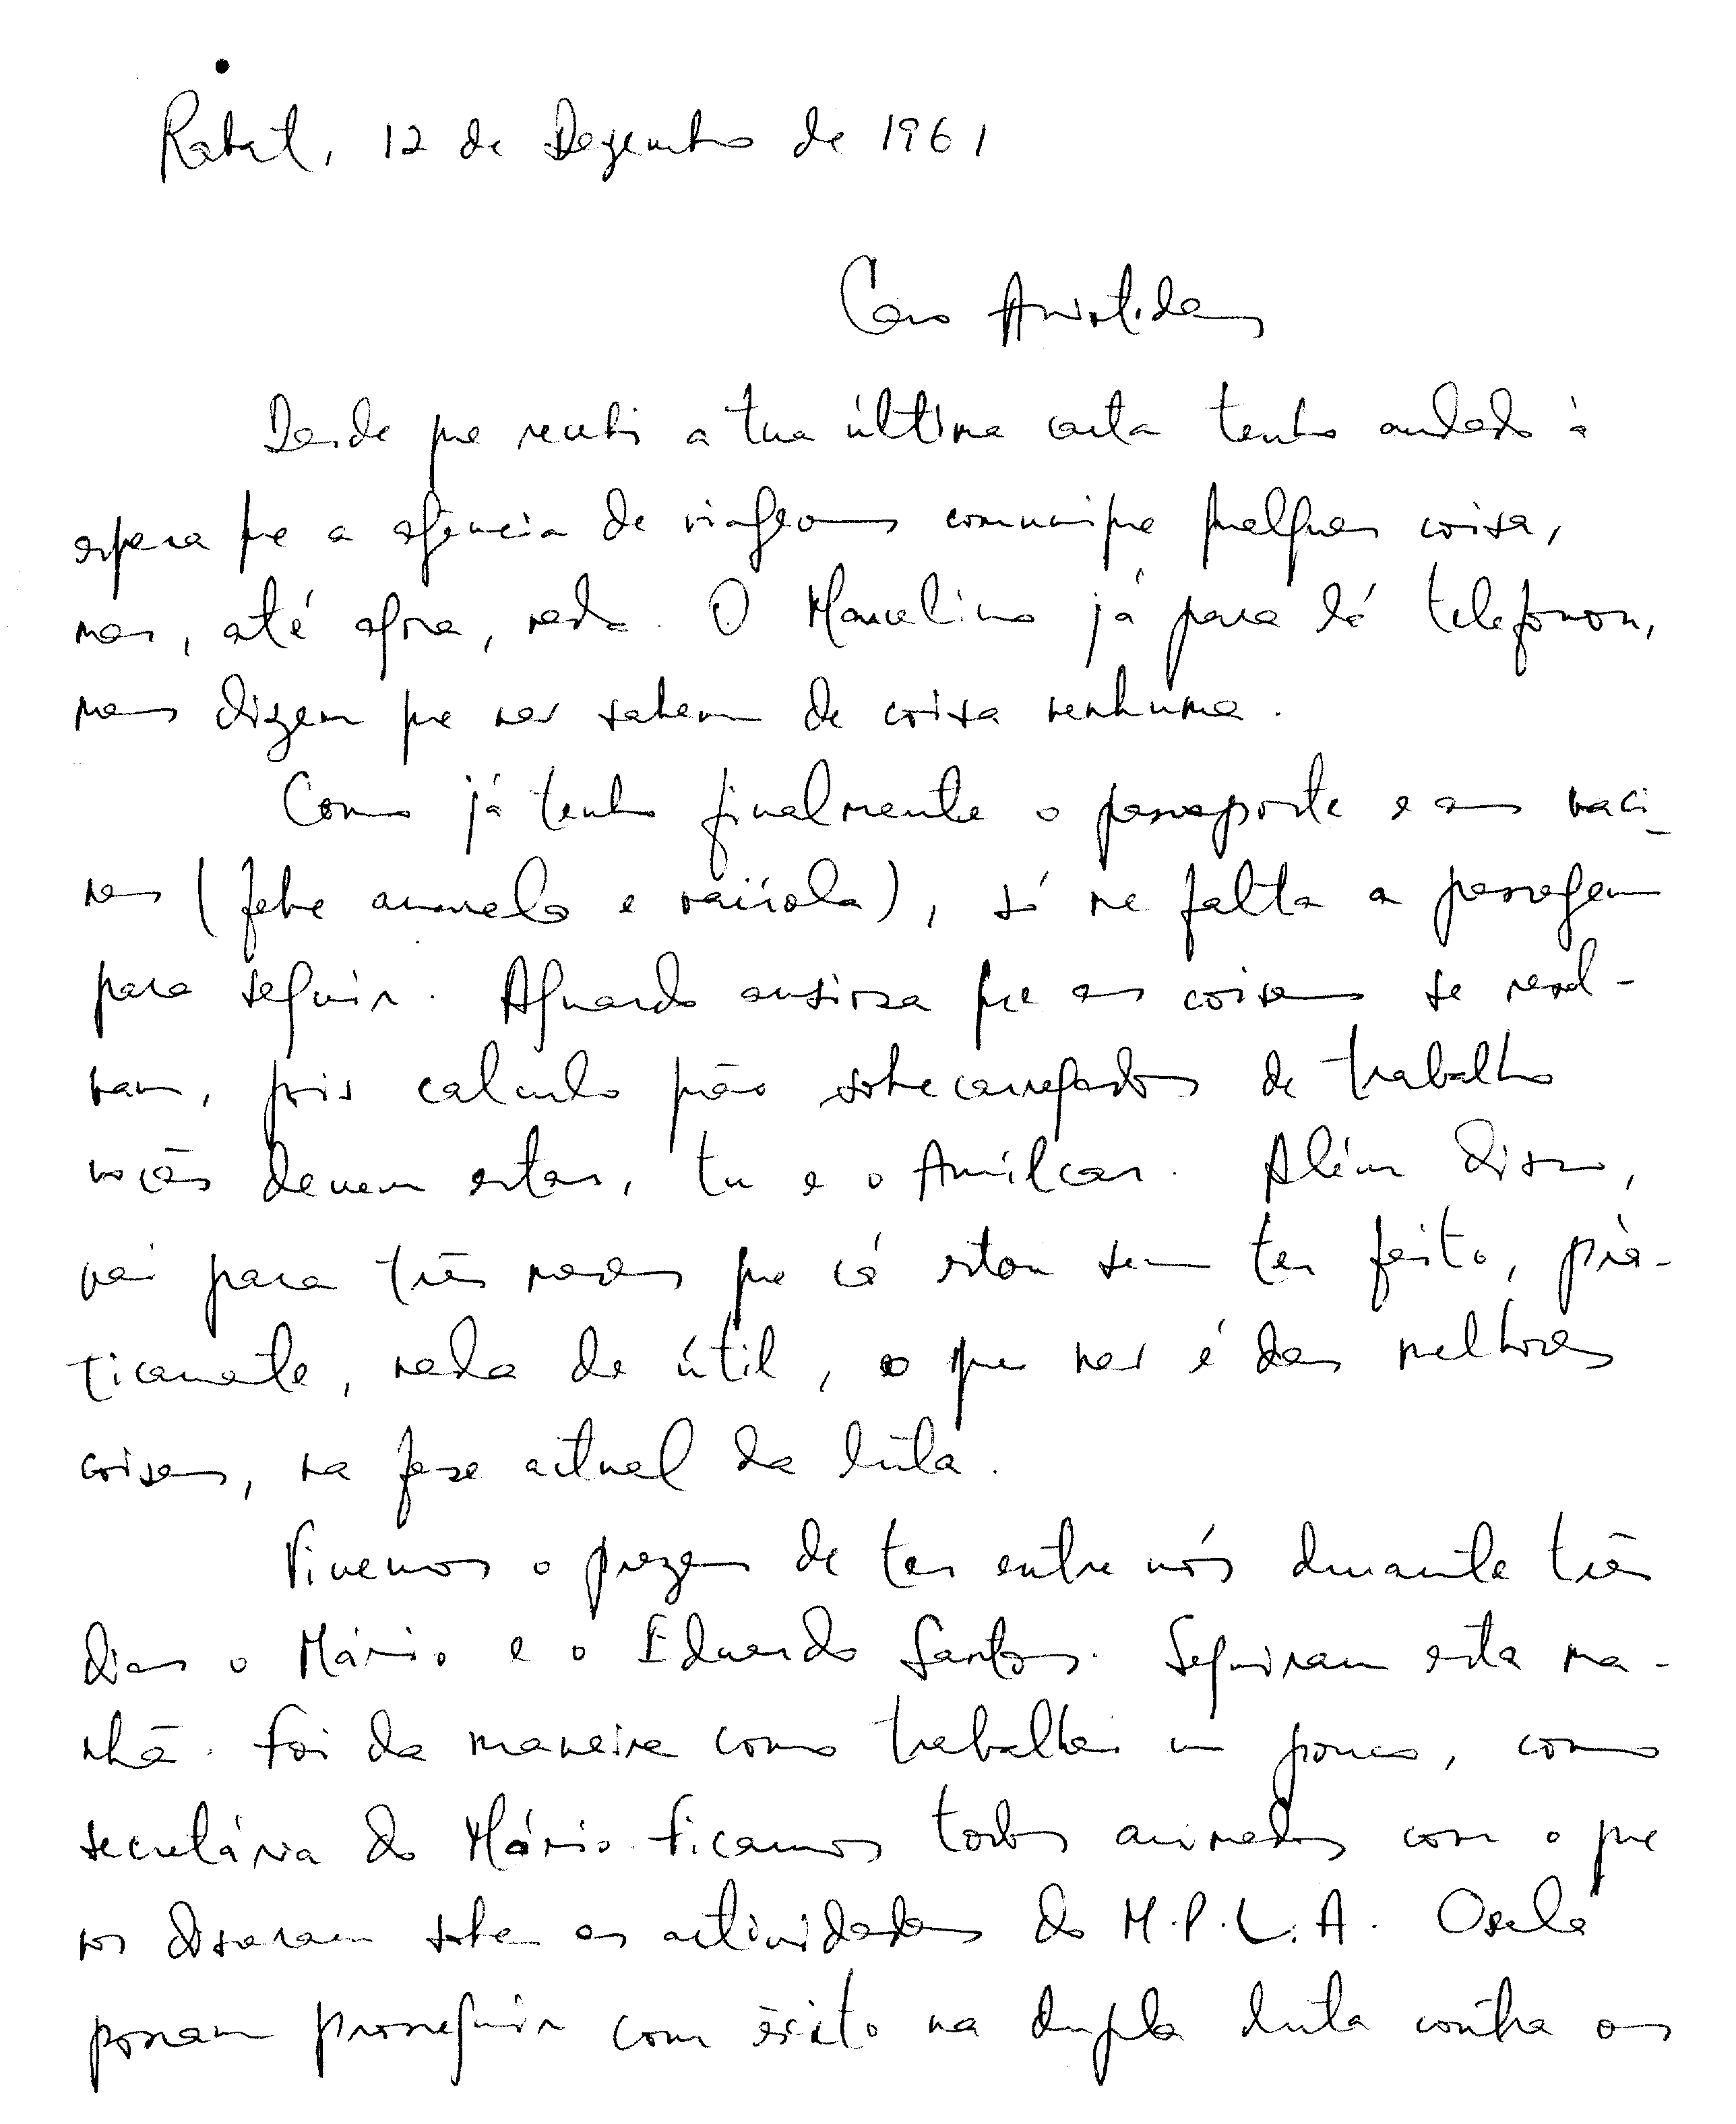 Rabat, 12 de Dezembro de 1961
Caro Aristides
Desde que recebi a tua última carta tenho andado à
espera que a agência de viagens comunique qualquer coisa,
mas, até agora, nada. O Marcelino já para lá telefonou,
mas dizem que não sabem de coisa nenhuma.
Como já tenho finalmente o passaporte e as vaci-
nas (febre amarela e varíola), só me falta a passagem
para seguir. Aguardo ansiosa que as coisas se resol-
vam, pois calculo quão sobrecarregados de trabalho
vocês devem estar, tu e o Amílcar. Além disso,
vai para três meses que cá estou sem ter feito, prà-
ticamente, nada de útil, o que não é das melhores
coisas, na fase actual da luta.
Tivemos o prazer de ter entre nós durante três
dias o Mário e o Eduardo Santos. Seguiram esta ma-
nhã. Foi da maneira como trabalhei um pouco, como
secretária do Mário. Ficamos todos animados com o que
nos disseram sobre as actividades do M.P.L.A. Oxalá
possam prosseguir com êxito na dupla luta contra os